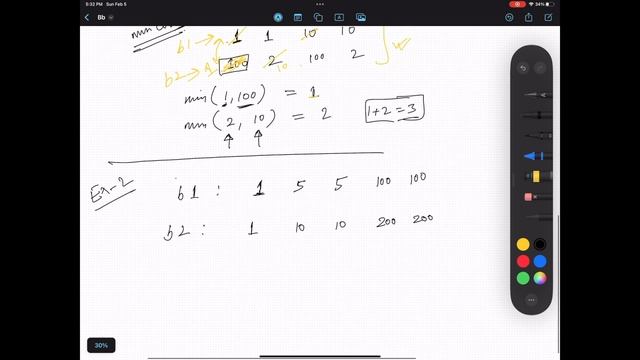 5:32 PM Sun Feb 5
34%
Bb
min
b1 → 1 1 10 10
b2 → 100 2 100 2
10
min(1, 100) = 1
min(2, 10) = 2
1+2=3
Ex-2
b1 : 1 5 5 100 100
b2 : 1 10 10 200 200
30%